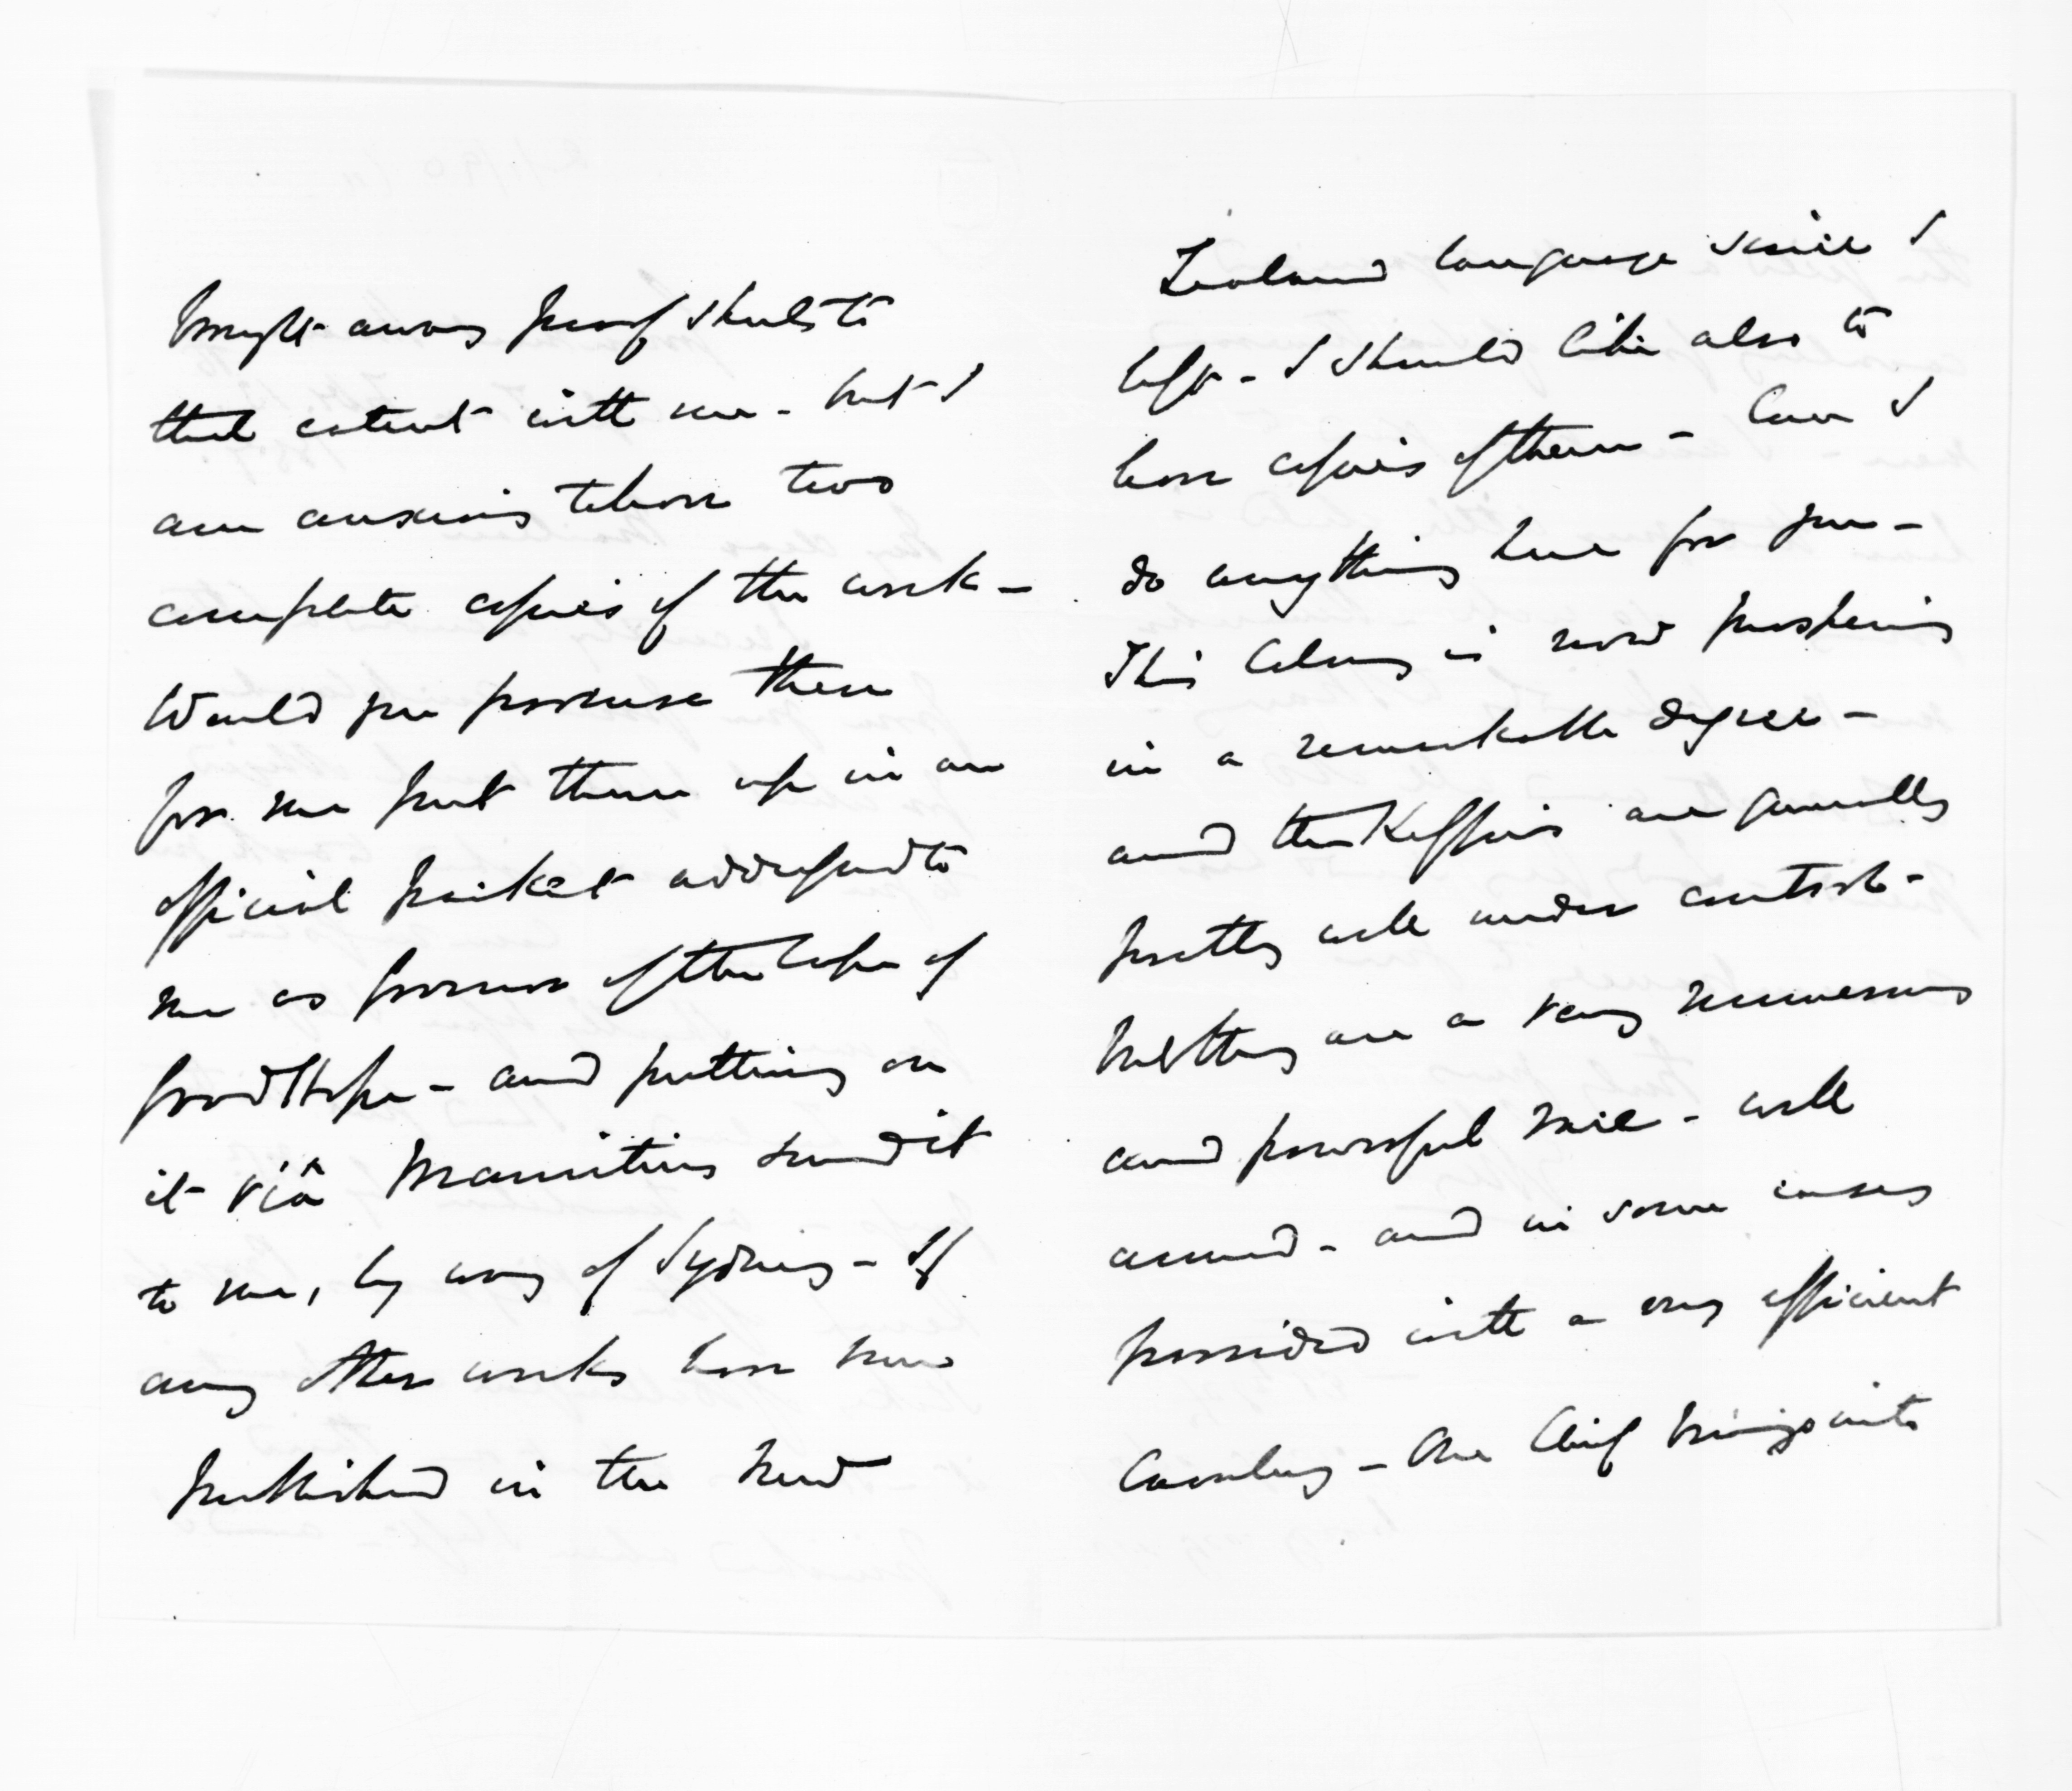 brought away proof sheets to
that extent with me - but I
am anxious to have two
complete copies of the work -
Would you procure them
for me put them up in an
official packet addressed to
me as Governor of the Cape of
Good Hope - and putting on
it viâ Mauritius send it
to me, by way of Sydney - If
any other works have been
published in the New
Zealand language since I
left - I should like also to
have copies of them - Can I
do anything here for you -
This Colony is now prospering
in a remarkable degree -
and the Kaffirs are generally
pretty well under control -
but they are a very numerous
and powerful race - well
armed - and in some cases
provided with a very efficient
Cavalry - One Chief brings into